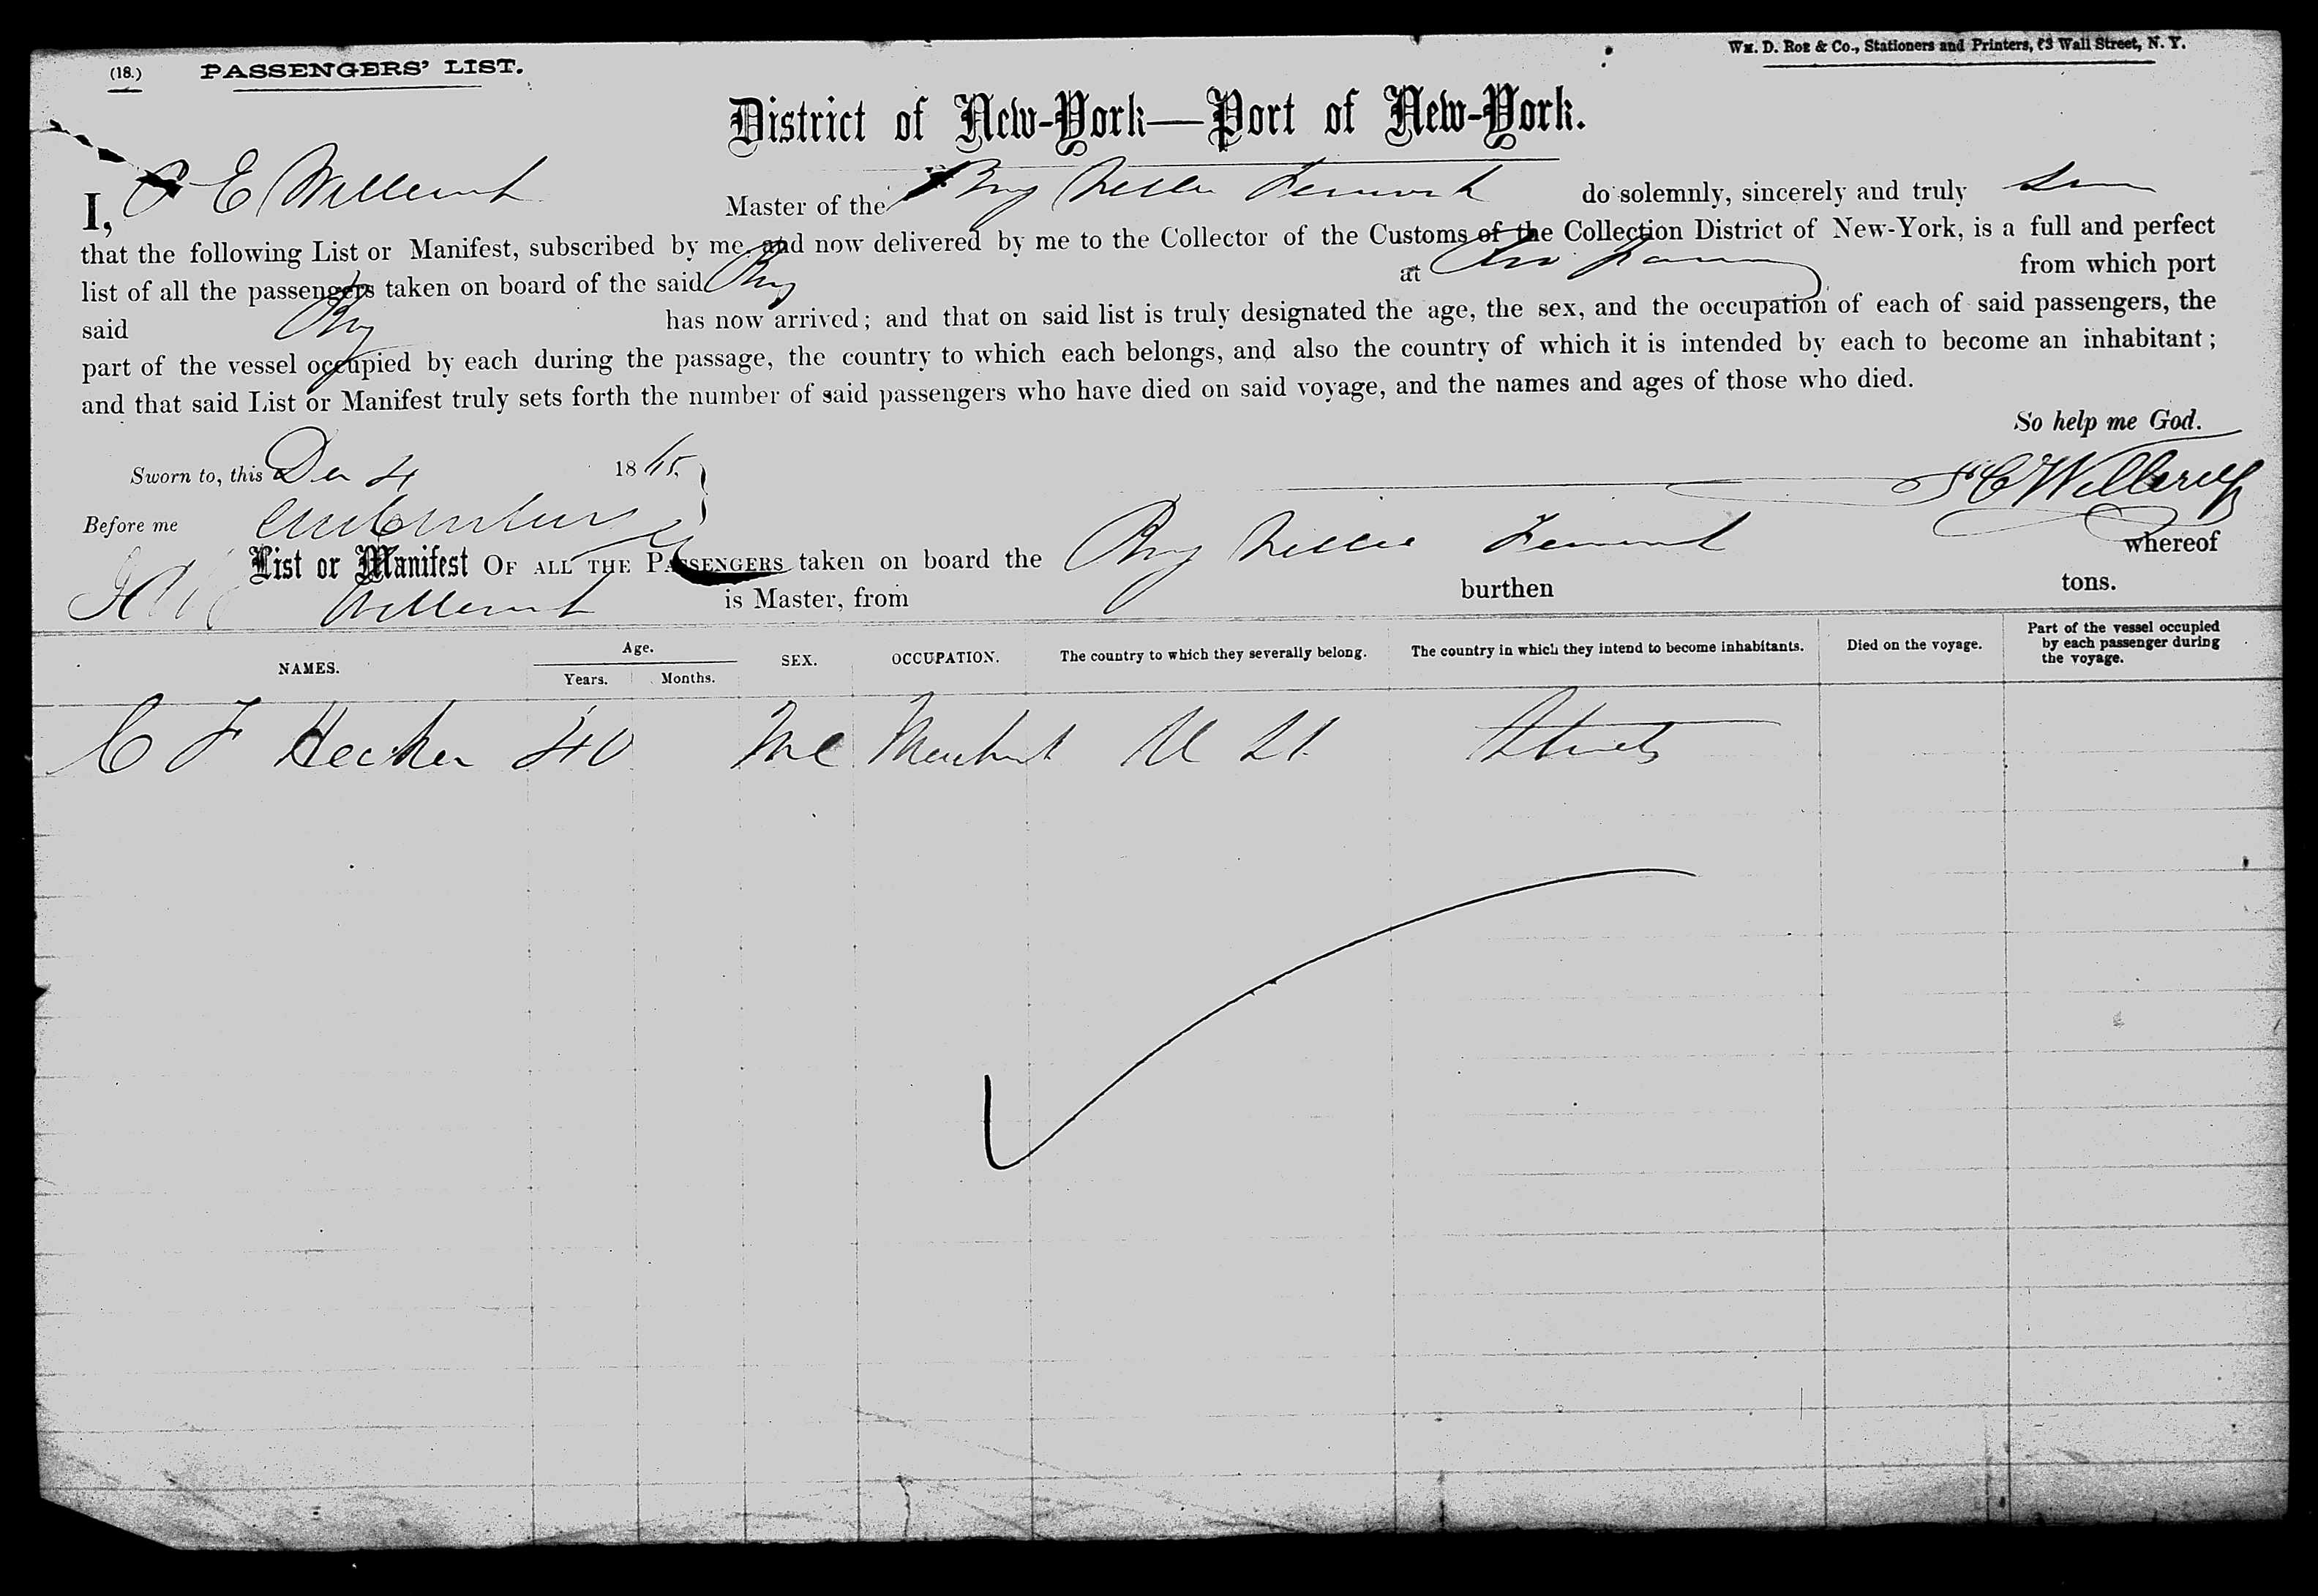 (18.) PASSENGERS' LIST.
Wm. D. Roe & Co., Stationers and Printers, 63 Wall Street, N. Y.
District of New-York—Port of New-York.
I, E Master of the Brig Nellie do solemnly, sincerely and truly
that the following List or Manifest, subscribed by me and now delivered by me to the Collector of the Customs of the Collection District of New-York, is a full and perfect
list of all the passengers taken on board of the said Brig at from which port
said Brig has now arrived; and that on said list is truly designated the age, the sex, and the occupation of each of said passengers, the
part of the vessel occupied by each during the passage, the country to which each belongs, and also the country of which it is intended by each to become an inhabitant;
and that said List or Manifest truly sets forth the number of said passengers who have died on said voyage, and the names and ages of those who died.
So help me God.
Sworn to, this Dec 4 1865
Before me
List or Manifest OF ALL THE PASSENGERS taken on board the Brig Nellie whereof
is Master, from burthen tons.
NAMES. Age. Years. Months. SEX. OCCUPATION. The country to which they severally belong. The country in which they intend to become inhabitants. Died on the voyage. Part of the vessel occupied by each passenger during the voyage.
C F Hecker 40 Merchant U St